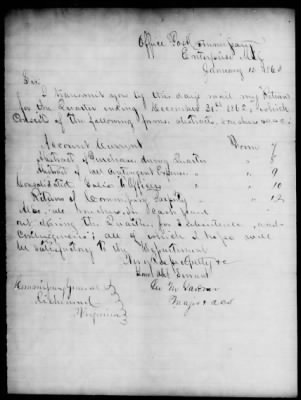 Office Post Commissary
Enterprise Miss
January 15 1863
Sir
I transmit you by this days mail my Returns
for the Quarter ending December 31st 1862, which
Consist of the following forms abstracts, vouchers &c &c;
Account Current Form 7
Abstract of Purchases during Quarter " 8
Abstract of all Contingent Expenses " 9
Consolidated Sales to Officers " 10
Return of Commissary Property " 12
Also, all vouchers for Cash paid
out during the Quarter, for Subsistence, and
Contingencies; all of which I hope will
be satisfactory to the Department
Very Respectfully &c
Your Obt Servant
Commissary General
Richmond
Virginia
Geo
Major & ACS